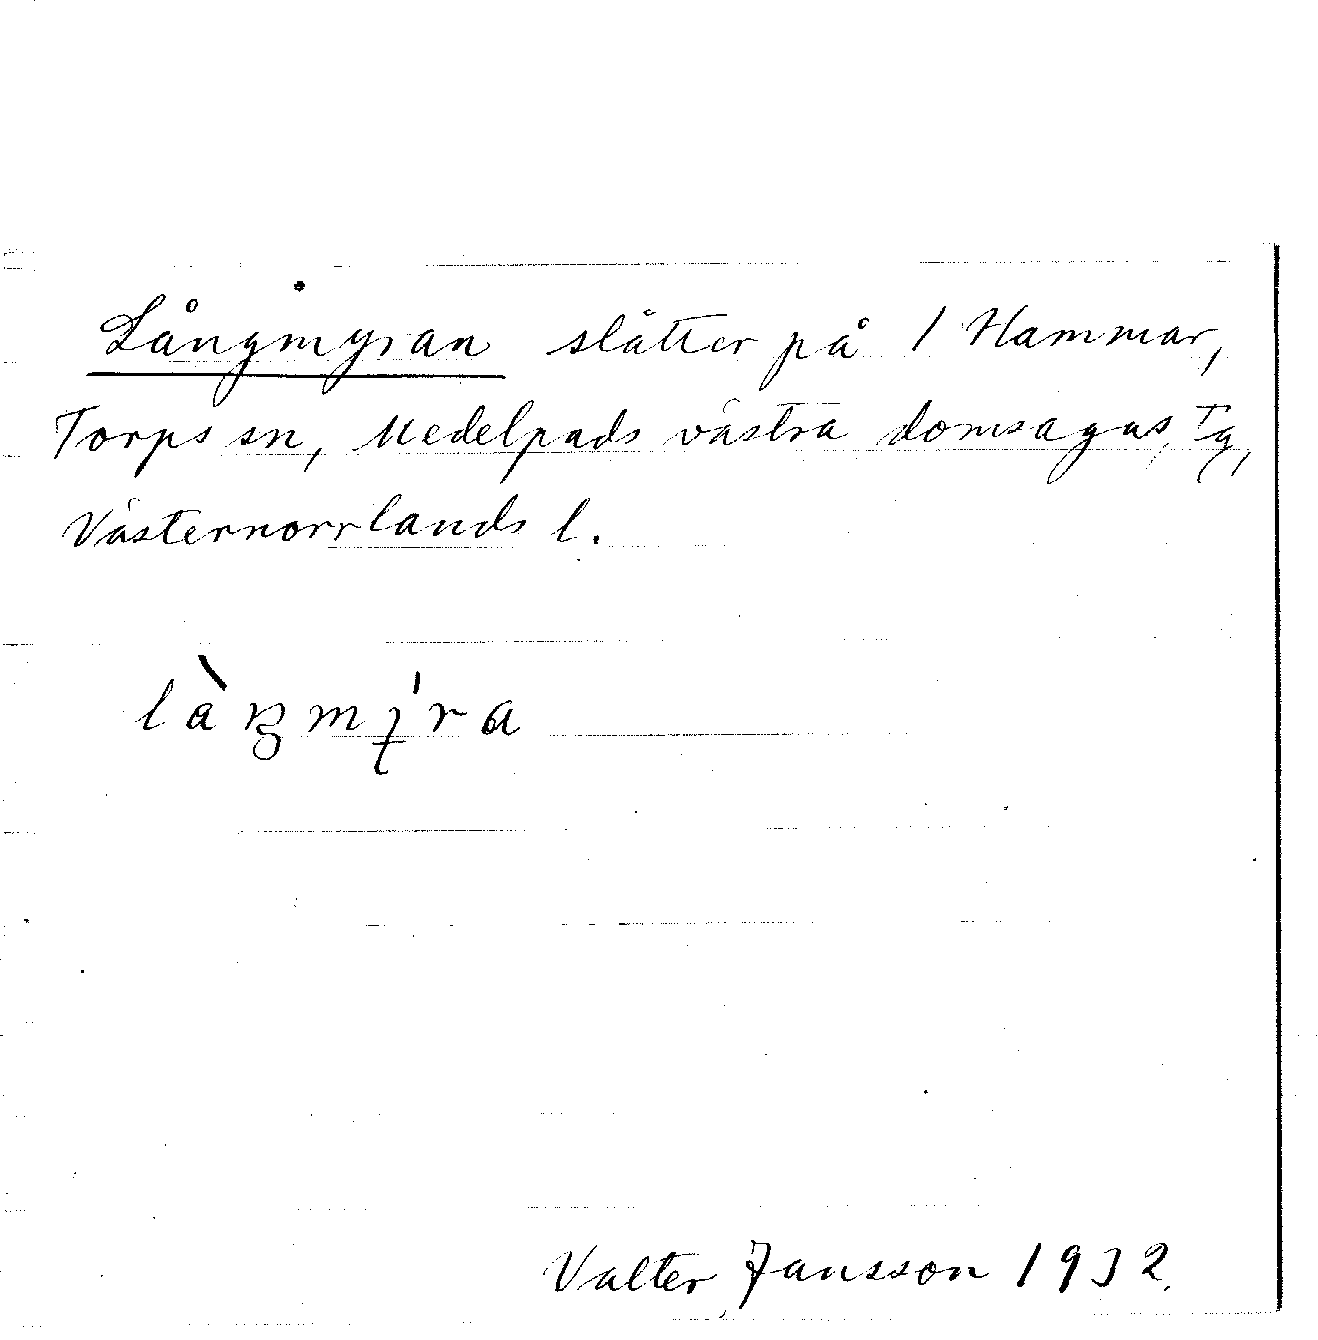 Långmyran slåtter på 1 Hammar,
Torps sn, Medelpads västra domsagas, Tg,
Västernorrlands l.
làŋmy̍ra
Valter Jansson 1932.